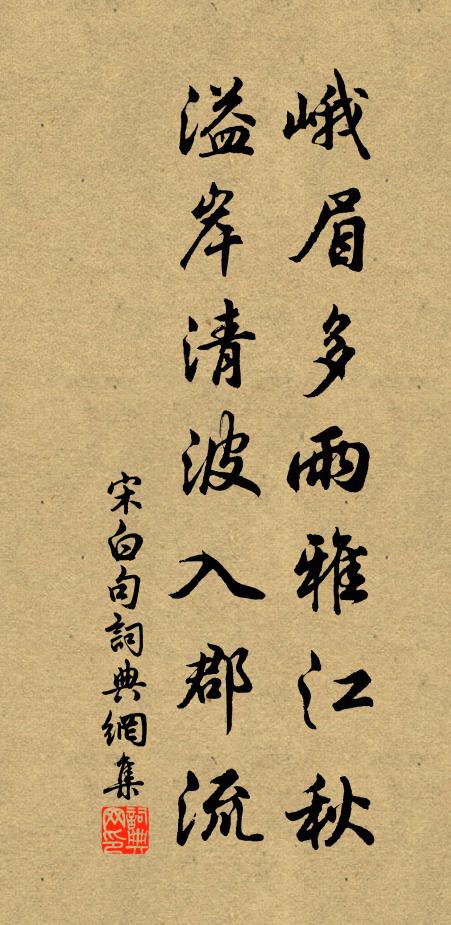 峨眉多雨雅江秋
溢岸清波入郡流
宋白句詞典網集
詞典网印